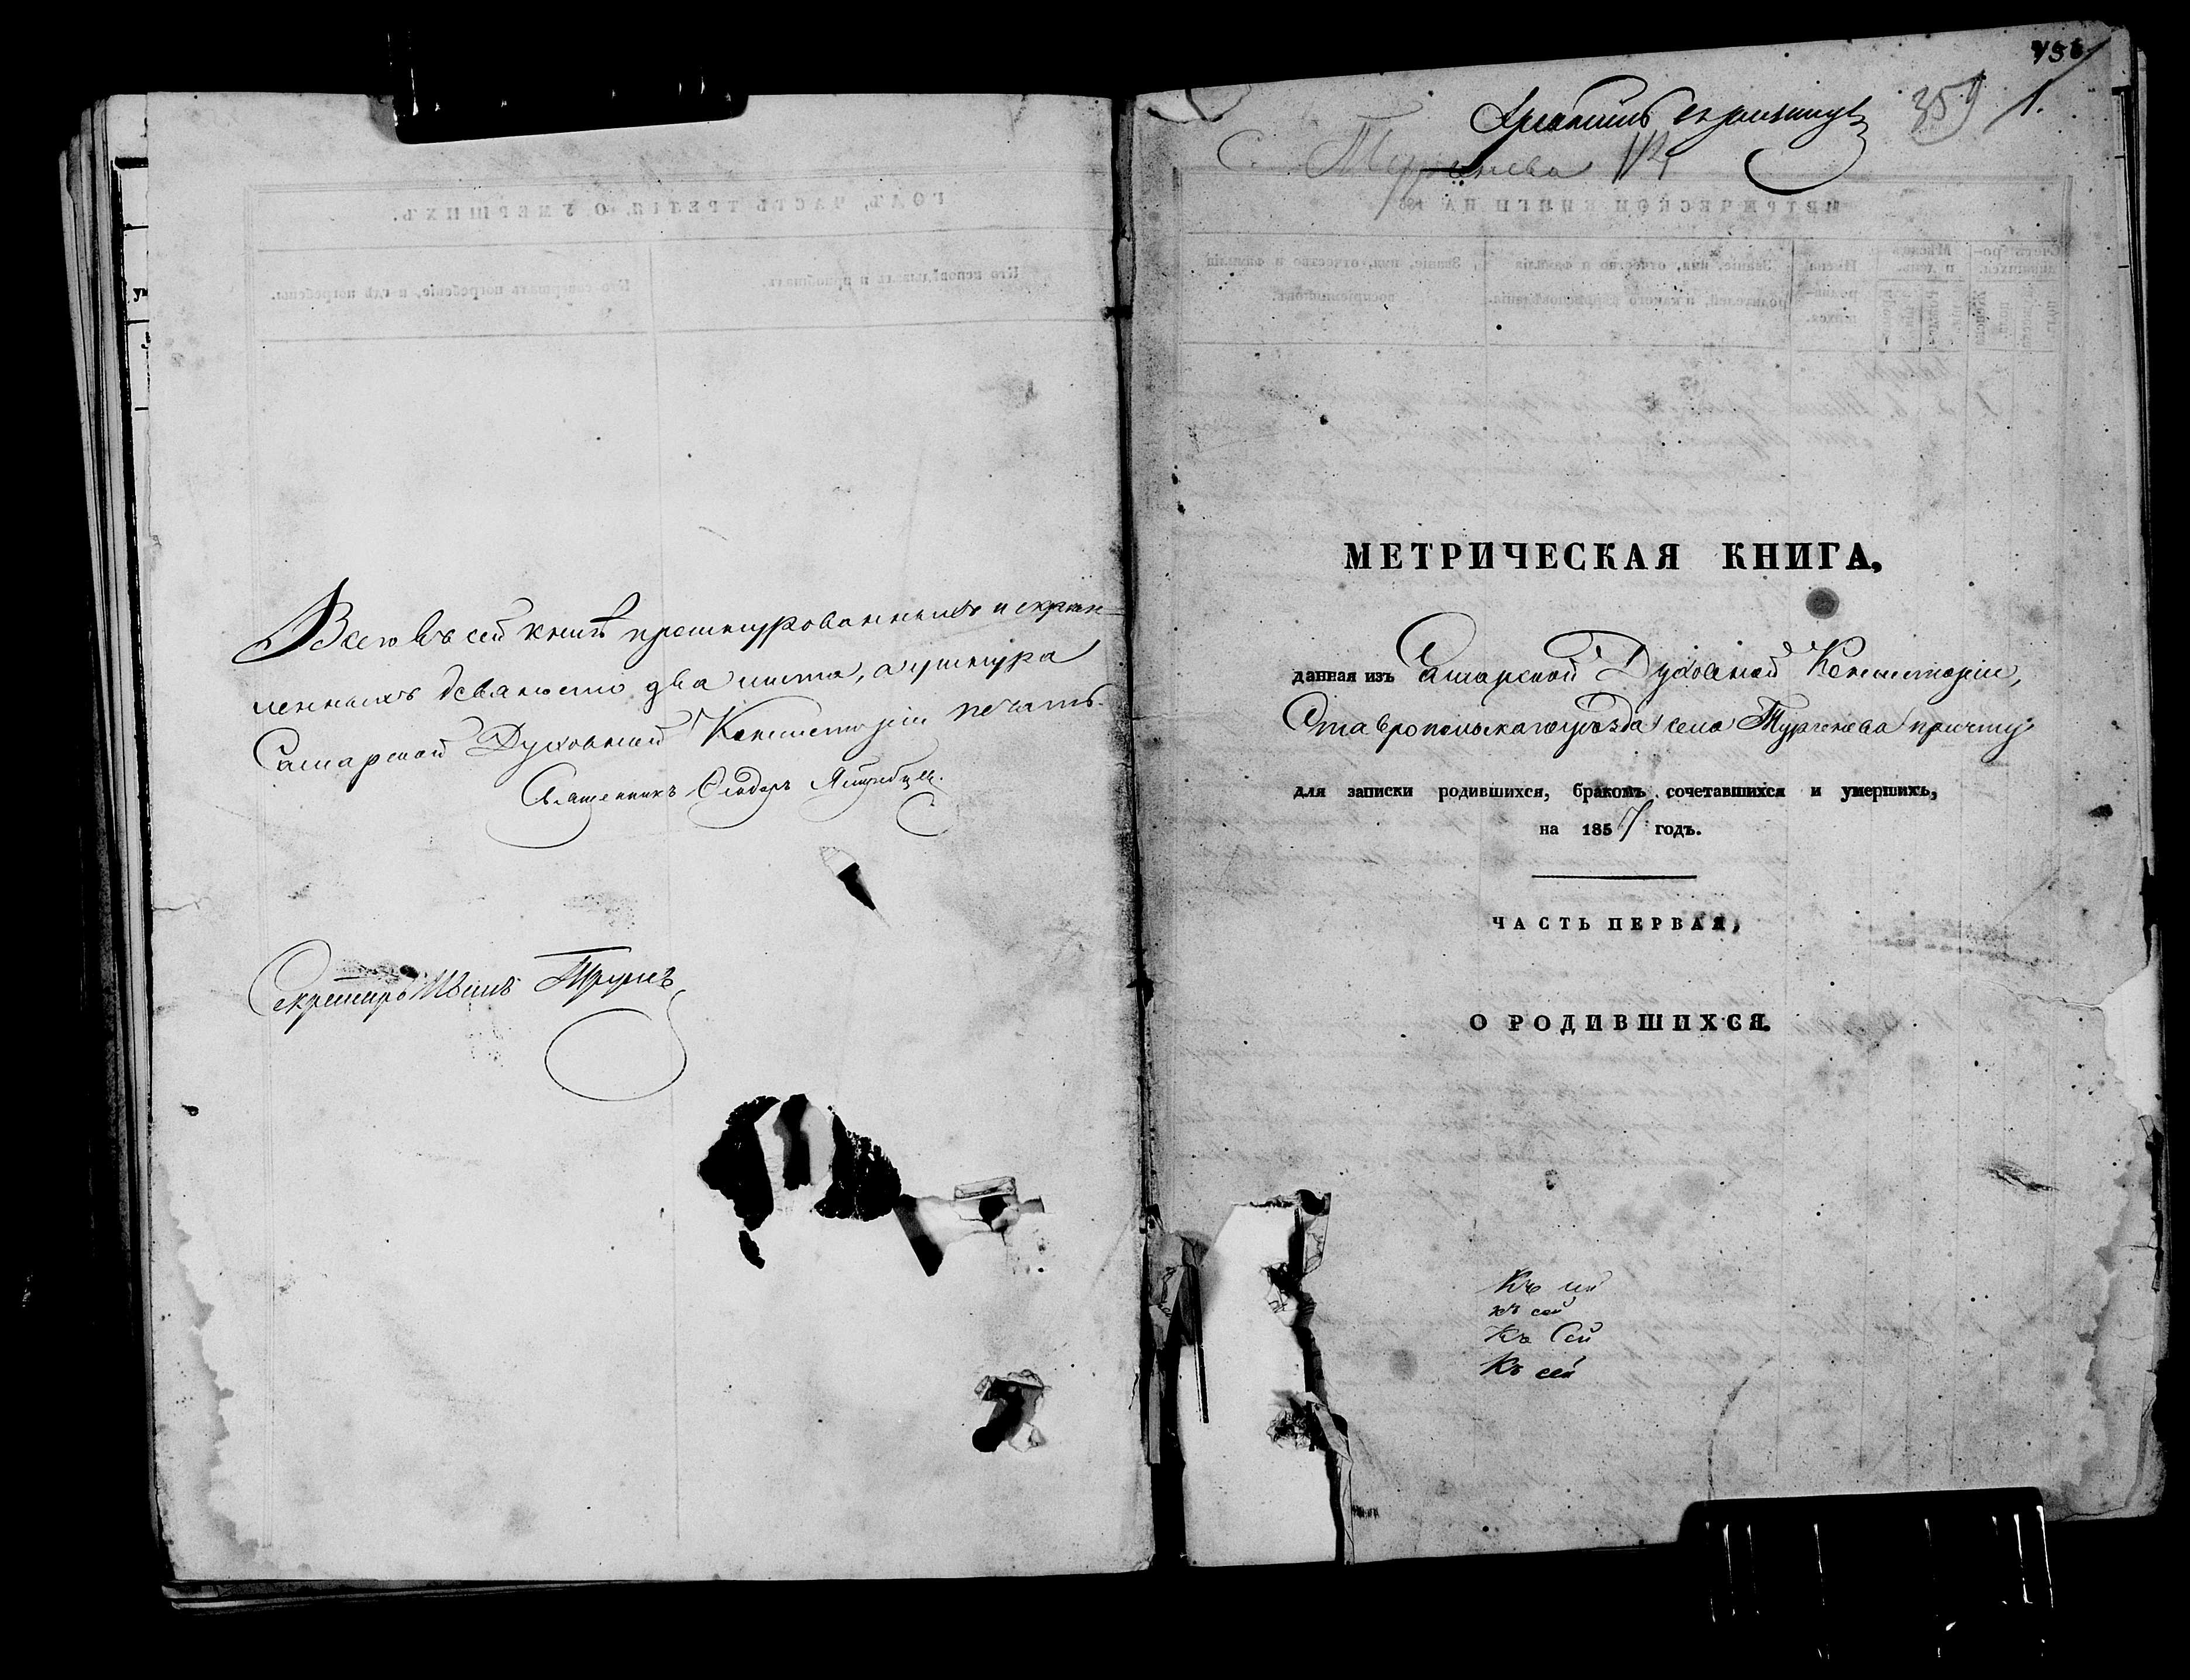 Всего въ сей книгѣ прошнурованныхъ и скрѣп-
ленныхъ девяносто два листа, а у шнура
Самарской Духовной Консисторіи печать.
Священникъ Ѳеодоръ
Секретарь Иванъ
359 1.
С. Тургенева
МЕТРИЧЕСКАЯ КНИГА,
данная изъ Самарской Духовной Консисторіи,
Ставропольскаго уѣзда села Тургенева причту
для записки родившихся, бракомъ сочетавшихся и умершихъ,
на 1857 годъ.
ЧАСТЬ ПЕРВАЯ,
О РОДИВШИХСЯ.
Къ сей
къ сей
Къ Сей
Къ сей